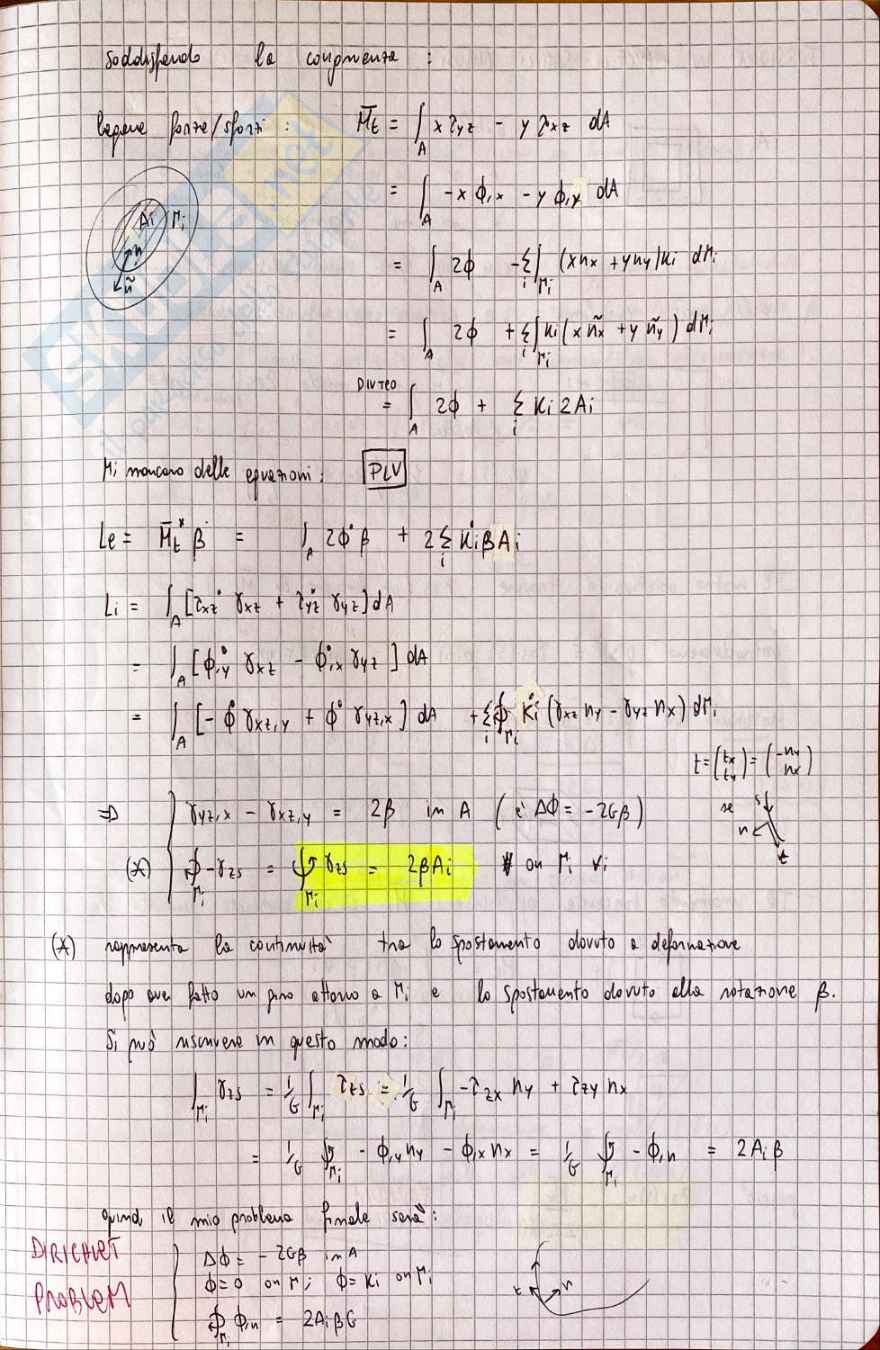 Soddisfando la congruenza :
legame forze/sforzi : M̄t = ∫_A x τyz - y τxz dA
= ∫_A -x ϕ,x - y ϕ,y dA
Ai Γi n ñ
= ∫_A 2ϕ - Σ_i ∫_Γi (x nx + y ny) Ki dΓi
= ∫_A 2ϕ + Σ_i ∫_Γi Ki (x ñx + y ñy) dΓi
DIV TEO
= ∫_A 2ϕ + Σ_i Ki 2Ai
Mi mancano delle equazioni : PLV
Le = M̄t* β = ∫_A 2ϕ* β + 2 Σ_i Ki* β Ai
Li = ∫_A [τxz* γxz + τyz* γyz] dA
= ∫_A [ϕ*,y γxz - ϕ*,x γyz] dA
= ∫_A [-ϕ* γxz,y + ϕ* γyz,x] dA + Σ_i ∮_Γi Ki* (γxz ny - γyz nx) dΓi
t = (tx ty) = (-ny nx)
⇒ γyz,x - γxz,y = 2β in A ( è Δϕ = -2Gβ )
se s n t
(*) ∮_Γi -γzs = ∮_Γi γzs = 2βAi on Γi ∀i
(*) rappresenta la continuità tra lo spostamento dovuto a deformazione
dopo aver fatto un giro attorno a Γi e lo spostamento dovuto alla rotazione β.
Si può riscrivere in questo modo :
∫_Γi γzs = 1/G ∫_Γi τzs = 1/G ∫_Γi -τzx ny + τzy nx
= 1/G ∮_Γi - ϕ,y ny - ϕ,x nx = 1/G ∮_Γi - ϕ,n = 2Ai β
quindi il mio problema finale sarà :
DIRICHLET PROBLEM
Δϕ = -2Gβ in A
ϕ = 0 on Γ; ϕ = Ki on Γi
∮_Γi ϕ,n = 2AiβG
t n
SKUOLA.net
il paradiso dello studente